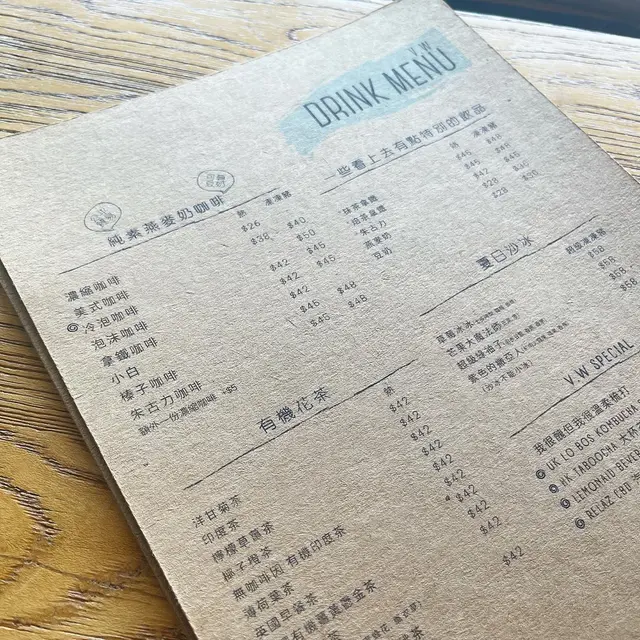 V.W
DRINK MENU
純素燕麥奶咖啡
熱 凍凍豬
濃縮咖啡 $26
美式咖啡 $38 $40
冷泡咖啡 $50
泡沫咖啡 $42 $45
拿鐵咖啡 $42 $45
小白 $42
榛子咖啡 $45 $48
朱古力咖啡 $45 $48
額外一份濃縮咖啡 +$5
一些看上去有點特別的飲品
熱 凍凍豬
抹茶拿鐵 $45 $48
焙茶拿鐵 $45 $48
朱古力 $42 $45
燕麥奶 $28 $30
豆奶 $28 $30
夏日沙冰
草莓冰冰
芒果大魔法師
超級綠襪子
紫色的獵衣人
$58
$58
$58
$58
有機花茶
熱
洋甘菊茶 $42
印度茶 $42
檸檬草薑茶 $42
椰子橙茶 $42
無咖啡因 有機印度茶 $42
薄荷葉茶 $42
英國早餐茶 $42
$42
V.W SPECIAL
我很醜但我很溫柔梳打
UK LO BOS KOMBUCHA
HK TABOOCHA 大杯
LEMONAID BEVER
RELAZ CBD